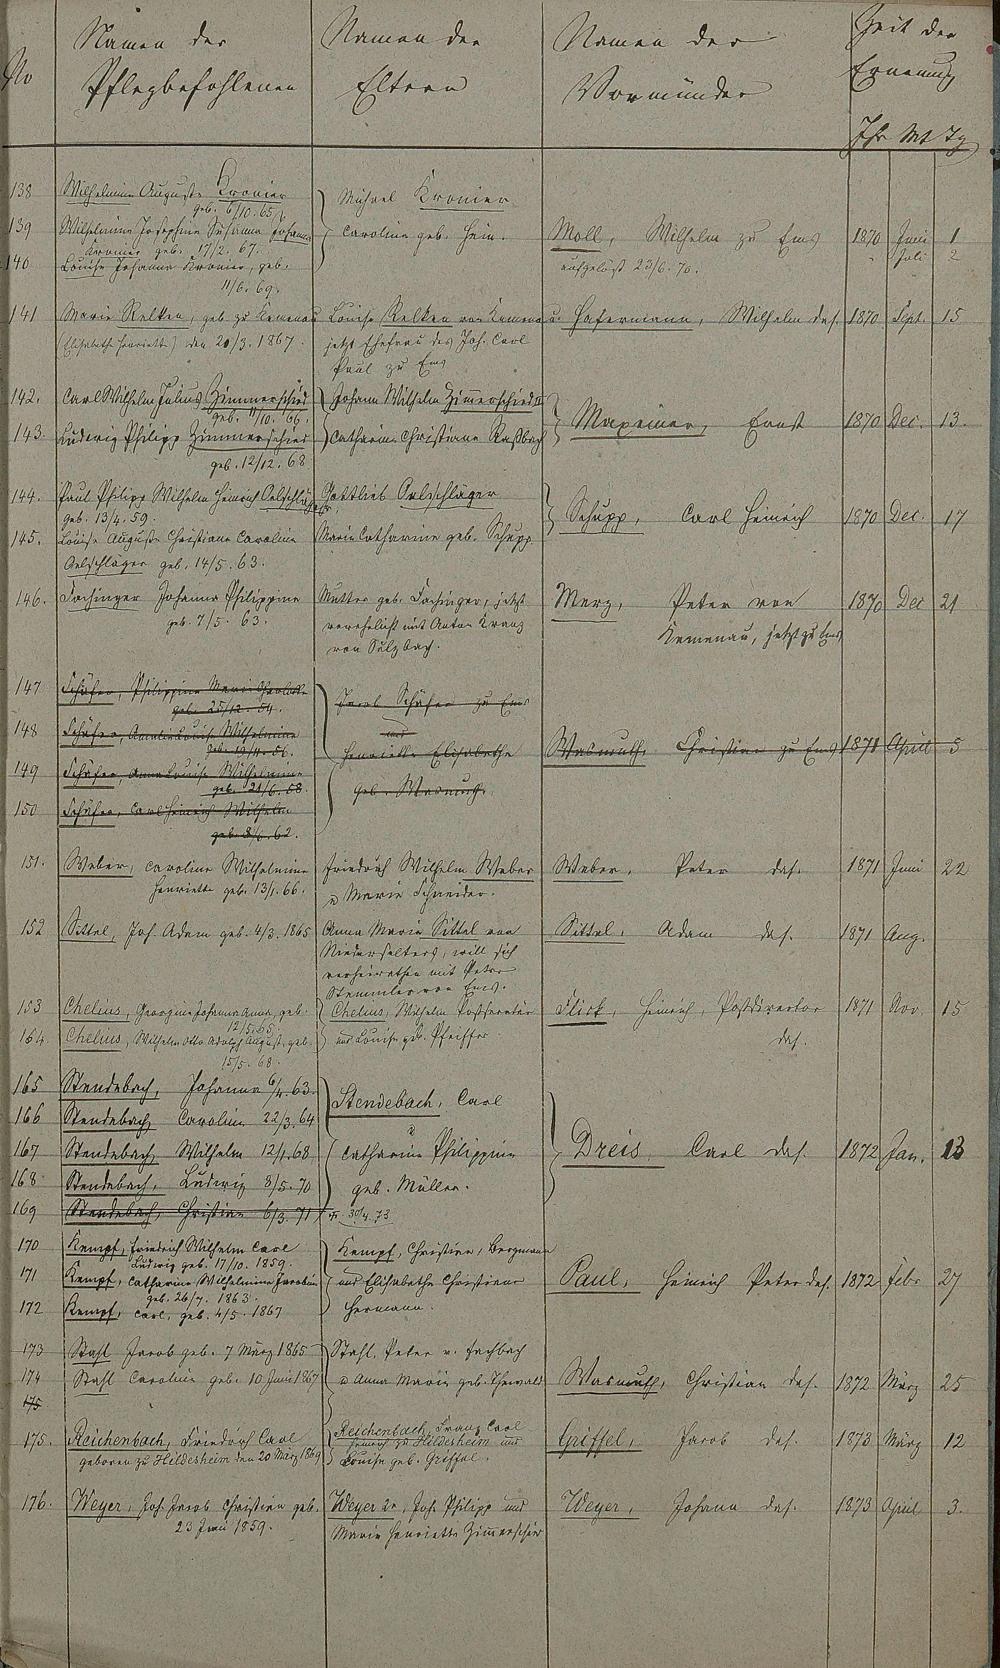 No
Namen der
Pflegbefohlenen
Namen der
Eltern
Namen der
Vormünder
Zeit der
Ernennung
Jhr Mt Tg
138 Wilhelmine Auguste Kronier
geb. 6/10. 65.
139 Wilhelmine Josephine Susanna Johanna
Kronier geb. 17/2. 67.
140 Louise Johanna Kronier, geb.
11/6. 69.
Michael Kronier
Caroline geb. Hein.
Moll, Wilhelm zu Ems
aufgelöst 23/6. 70.
1870 Juni 1
" Juli 2
141 Marie Relken, geb. zu Kemenau
(Elisabethe Henriette) den 20/3. 1867.
Louise Relken von Kemenau
jetzt Ehefrau des Joh. Carl
Paul zu Ems
Hafermann, Wilhelm das. 1870 Sept. 15
142. Carl Wilhelm Julius Zimmerschied
geb. 11/10. 66.
143. Ludwig Philipp Zimmerschied
geb. 12/12. 68
Johann Wilhelm Zimerschied II
Catharine Christiane Raßbach
Maxeiner, Ernst 1870 Dec. 13.
144. Paul Philipp Wilhelm Heinrich Oelschläger
geb. 13/4. 59.
145. Louise Auguste Christiane Caroline
Oelschläger geb. 14/5. 63.
Gottlieb Oelschläger
Marie Catharine geb. Schupp
Schupp, Carl Heinrich 1870 Dec. 17
146. Fachinger Johanna Philippine
geb. 7/5. 63.
Mutter geb. Fachinger, jetzt
verehelicht mit Anton Kranz
von Sulzbach.
Merz, Peter von
Kemenau, jetzt zu Ems
1870 Dec 21
147 Schäfer, Philippine Marie Charlotte
geb. 25/12. 54.
148 Schäfer, Amalie Louise Wilhelmine
geb. 19/4. 56.
149 Schäfer, Anna Louise Wilhelmine
geb. 21/6. 58.
150 Schäfer, Carl Heinrich Wilhelm
geb. 8/6. 62.
Jacob Schäfer zu Ems
und
Henriette Elisabethe
geb. Wasmuth.
Wasmuth, Christian zu Ems 1871 April 5
151. Weber, Caroline Wilhelmine
Henriette geb. 13/1. 66.
Friedrich Wilhelm Weber
u Marie Schneider.
Weber, Peter das. 1871 Juni 22
152 Sittel, Joh. Adam geb. 4/3. 1865
Anna Marie Sittel von
Niederselters, will sich
verheirathen mit Peter
Stemmler von Ems.
Sittel, Adam das. 1871 Aug.
153 Chelius, Georgine Johanna Anna, geb.
12/5. 65.
164. Chelius, Wilhelm Otto Adolph August, geb.
15/5. 68.
Chelius, Wilhelm Postsecretär
und Louise geb. Pfeiffer
Flick, Heinrich, Postdirector
das.
1871 Nov. 15
165 Stendebach, Johanna 6/4. 63.
166 Stendebach, Caroline 22/3. 64
167 Stendebach, Wilhelm 12/1. 68
168 Stendebach, Ludwig 8/5. 70
169 Stendebach, Christian 6/3. 71 † 30/4. 73
Stendebach, Carl
u
Catharine Philippine
geb. Müller.
Dreis, Carl das. 1872 Jan. 13
170 Kempf, Friedrich Wilhelm Carl
Ludwig geb. 17/10. 1859.
171 Kempf, Catharine Wilhelmine Jacobine
geb. 26/7. 1863.
172 Kempf, Carl, geb. 4/5. 1867
Kempf, Christian, Bergmann
und Elisabethe Christiane
Hermann.
Paul, Heinrich Peter das. 1872 Febr 27
173 Stahl Jacob geb. 7 März 1865
174 Stahl Caroline geb. 10 Juni 1867
175
Stahl, Peter v. Fachbach
u Anna Marie geb. Thewald
Wasmuth, Christian das. 1872 März 25
175. Reichenbach, Friedrich Carl
geboren zu Hildesheim den 20 März 1869
Reichenbach, Franz Carl
Heinrich zu Hildesheim und
Louise geb. Griffel.
Griffel, Jacob das. 1873 März 12
176. Weyer, Joh. Jacob Christian geb.
23 Juni 1859.
Weyer 2r, Joh. Philipp und
Marie Henriette Zimerschied
Weyer, Johann das. 1873 April 3.